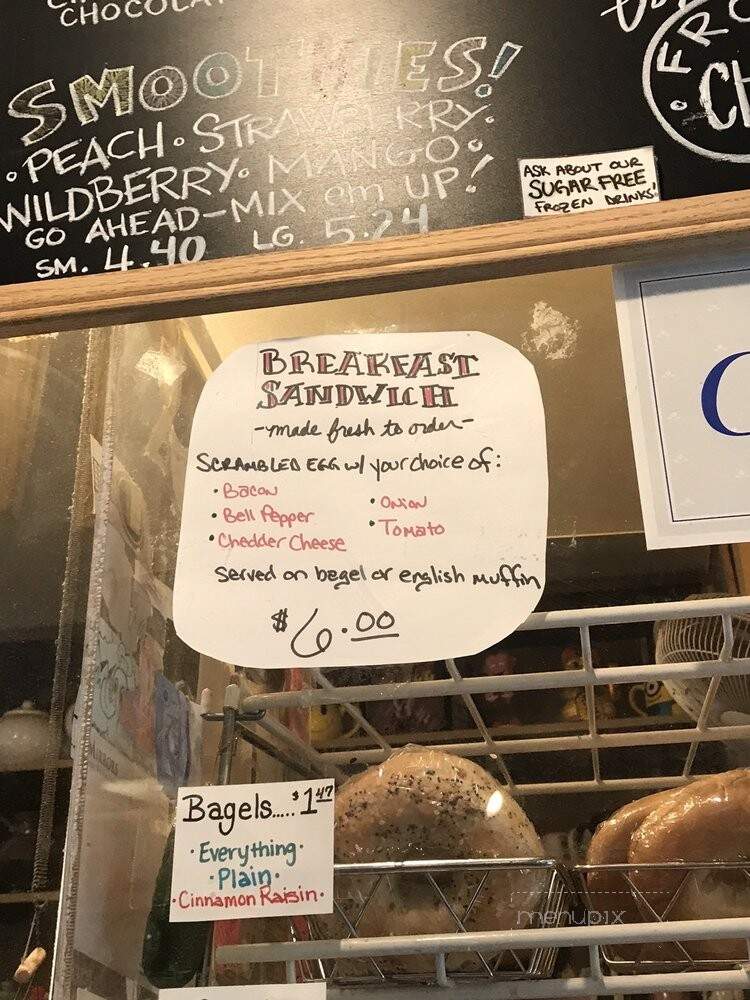 CHOCOLA
SMOOTHIES!
• PEACH • STRAWBERRY •
WILDBERRY • MANGO •
GO AHEAD-MIX em UP!
SM. 4.40 LG. 5.24
ASK ABOUT OUR
SUGAR FREE
FROZEN DRINKS!
BREAKFAST
SANDWICH
-made fresh to order-
SCRAMBLED EGG w/ your choice of:
• Bacon
• Bell Pepper
• Chedder Cheese
• Onion
• Tomato
Served on bagel or english muffin
$6.00
Bagels.....$1.47
• Everything •
• Plain •
• Cinnamon Raisin •
menupix